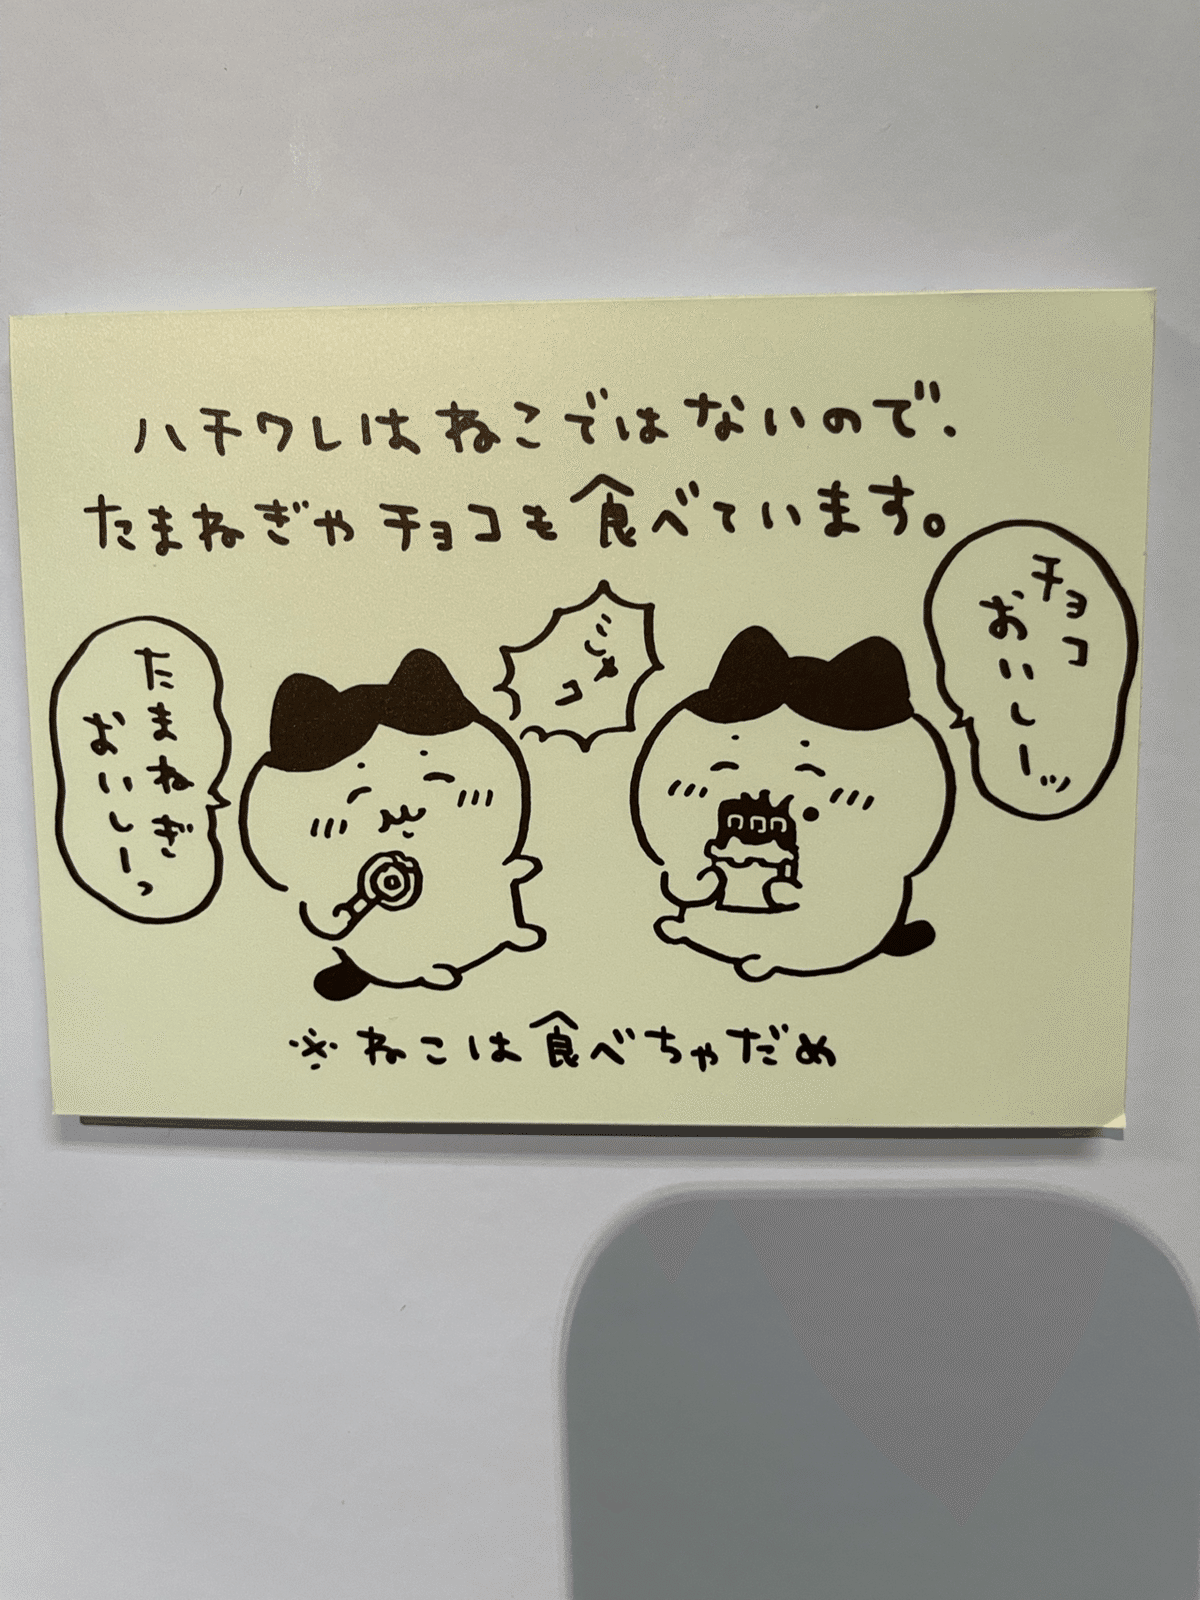 ハチワレはねこではないので、
たまねぎやチョコも食べています。
たまねぎ
おいしーっ
チョコ
おいしーッ
※ねこは食べちゃだめ